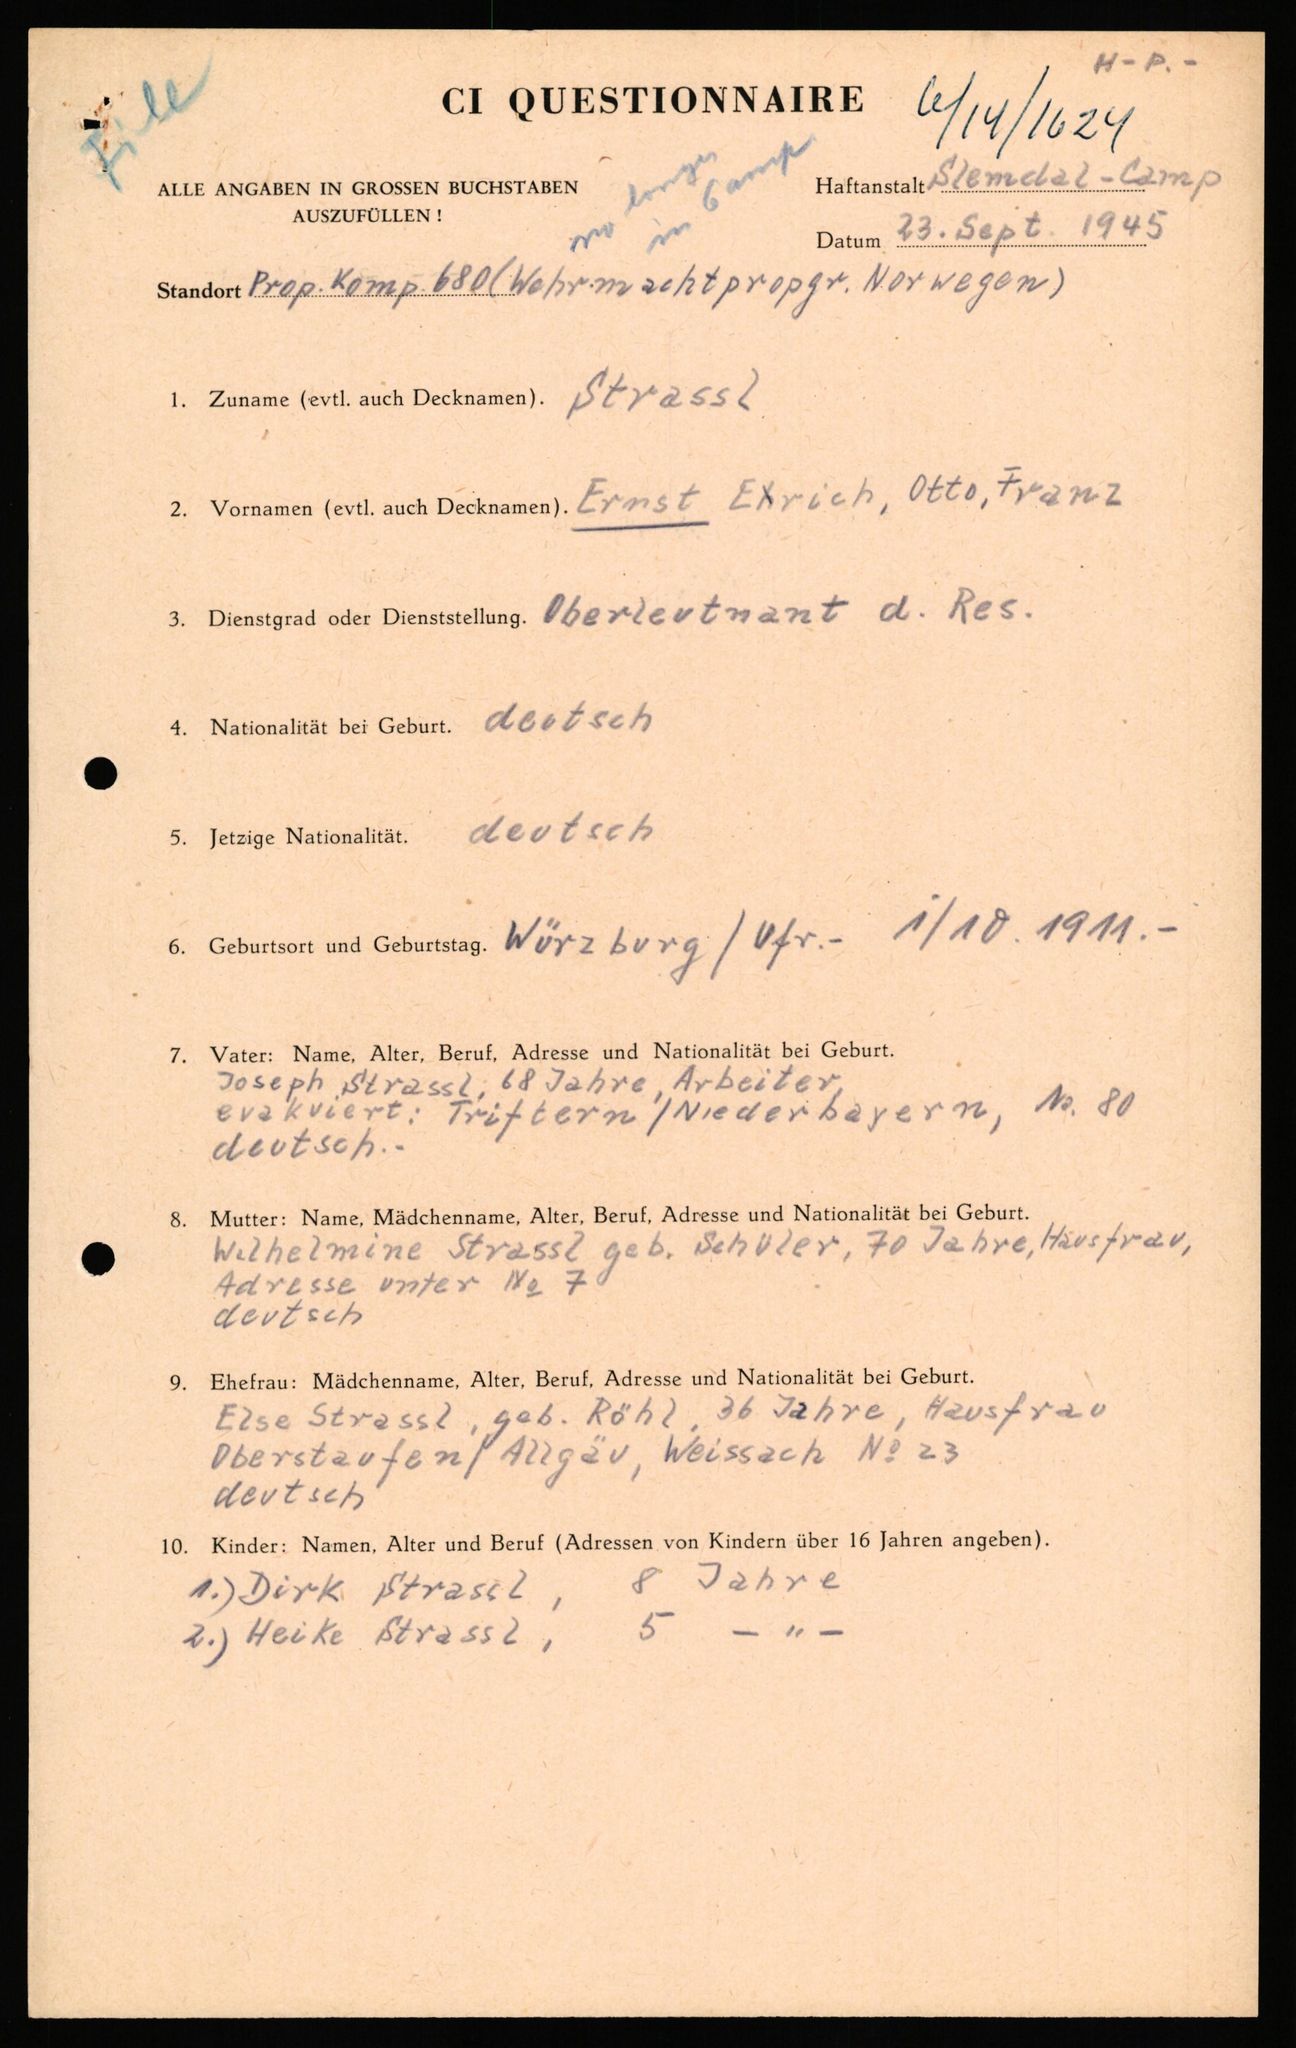 H - P. -
File
CI QUESTIONNAIRE
/14/1624
ALLE ANGABEN IN GROSSEN BUCHSTABEN
AUSZUFÜLLEN !
no longer
in Camp
Haftanstalt Slemdal - Camp
Datum 23. Sept. 1945
Standort Prop. Komp. 680 (Wehrmachtpropgr. Norwegen)
1. Zuname (evtl. auch Decknamen). Strassl
2. Vornamen (evtl. auch Decknamen). Ernst Erich, Otto, Franz
3. Dienstgrad oder Dienststellung. Oberleutnant d. Res.
4. Nationalität bei Geburt. deutsch
5. Jetzige Nationalität. deutsch
6. Geburtsort und Geburtstag. Würzburg / Ufr. - 1/10. 1911. -
7. Vater: Name, Alter, Beruf, Adresse und Nationalität bei Geburt.
Joseph Strassl, 68 Jahre, Arbeiter,
evakuiert: Triftern / Niederbayern, No. 80
deutsch. -
8. Mutter: Name, Mädchenname, Alter, Beruf, Adresse und Nationalität bei Geburt.
Wilhelmine Strassl geb. Schüler, 70 Jahre, Hausfrau,
Adresse unter No 7
deutsch
9. Ehefrau: Mädchenname, Alter, Beruf, Adresse und Nationalität bei Geburt.
Else Strassl, geb. Röhl, 36 Jahre, Hausfrau
Oberstaufen / Allgäu, Weissach No 23
deutsch
10. Kinder: Namen, Alter und Beruf (Adressen von Kindern über 16 Jahren angeben).
1.) Dirk Strassl, 8 Jahre
2.) Heike Strassl, 5 - " -